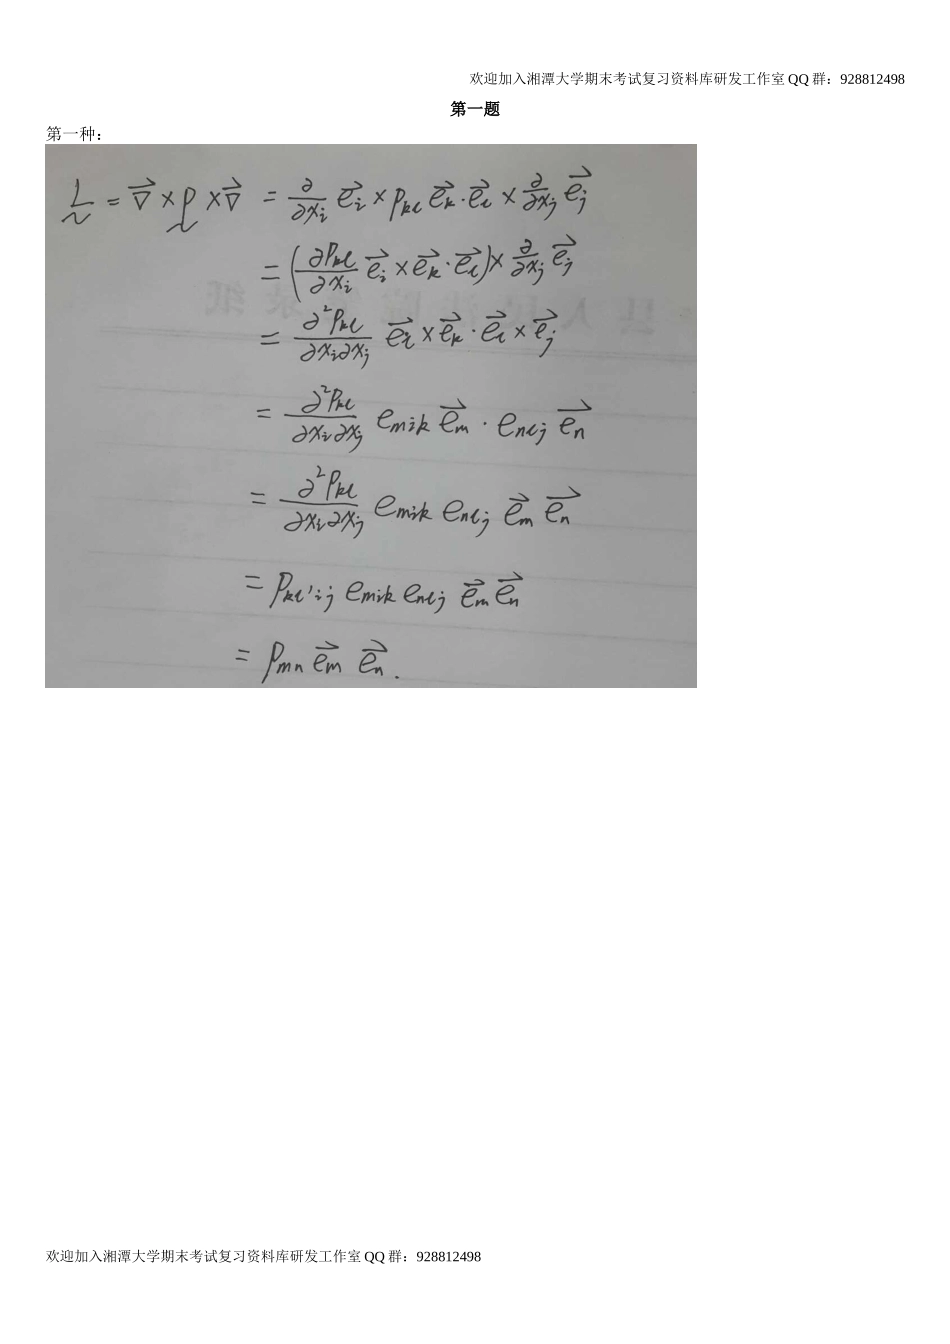 欢迎加入湘潭大学期末考试复习资料库研发工作室 QQ 群：928812498
第一题
第一种：
L̰ = ∇⃗ × p̰ × ∇⃗ = ∂/∂xᵢ e⃗ᵢ × pₖₗ e⃗ₖ · e⃗ₗ × ∂/∂xⱼ e⃗ⱼ
= (∂pₖₗ/∂xᵢ e⃗ᵢ × e⃗ₖ · e⃗ₗ) × ∂/∂xⱼ e⃗ⱼ
= ∂²pₖₗ/∂xᵢ∂xⱼ e⃗ᵢ × e⃗ₖ · e⃗ₗ × e⃗ⱼ
= ∂²pₖₗ/∂xᵢ∂xⱼ eₘᵢₖ e⃗ₘ · eₙₗⱼ e⃗ₙ
= ∂²pₖₗ/∂xᵢ∂xⱼ eₘᵢₖ eₙₗⱼ e⃗ₘ e⃗ₙ
= pₖₗ'ᵢⱼ eₘᵢₖ eₙₗⱼ e⃗ₘ e⃗ₙ
= pₘₙ e⃗ₘ e⃗ₙ .
欢迎加入湘潭大学期末考试复习资料库研发工作室 QQ 群：928812498